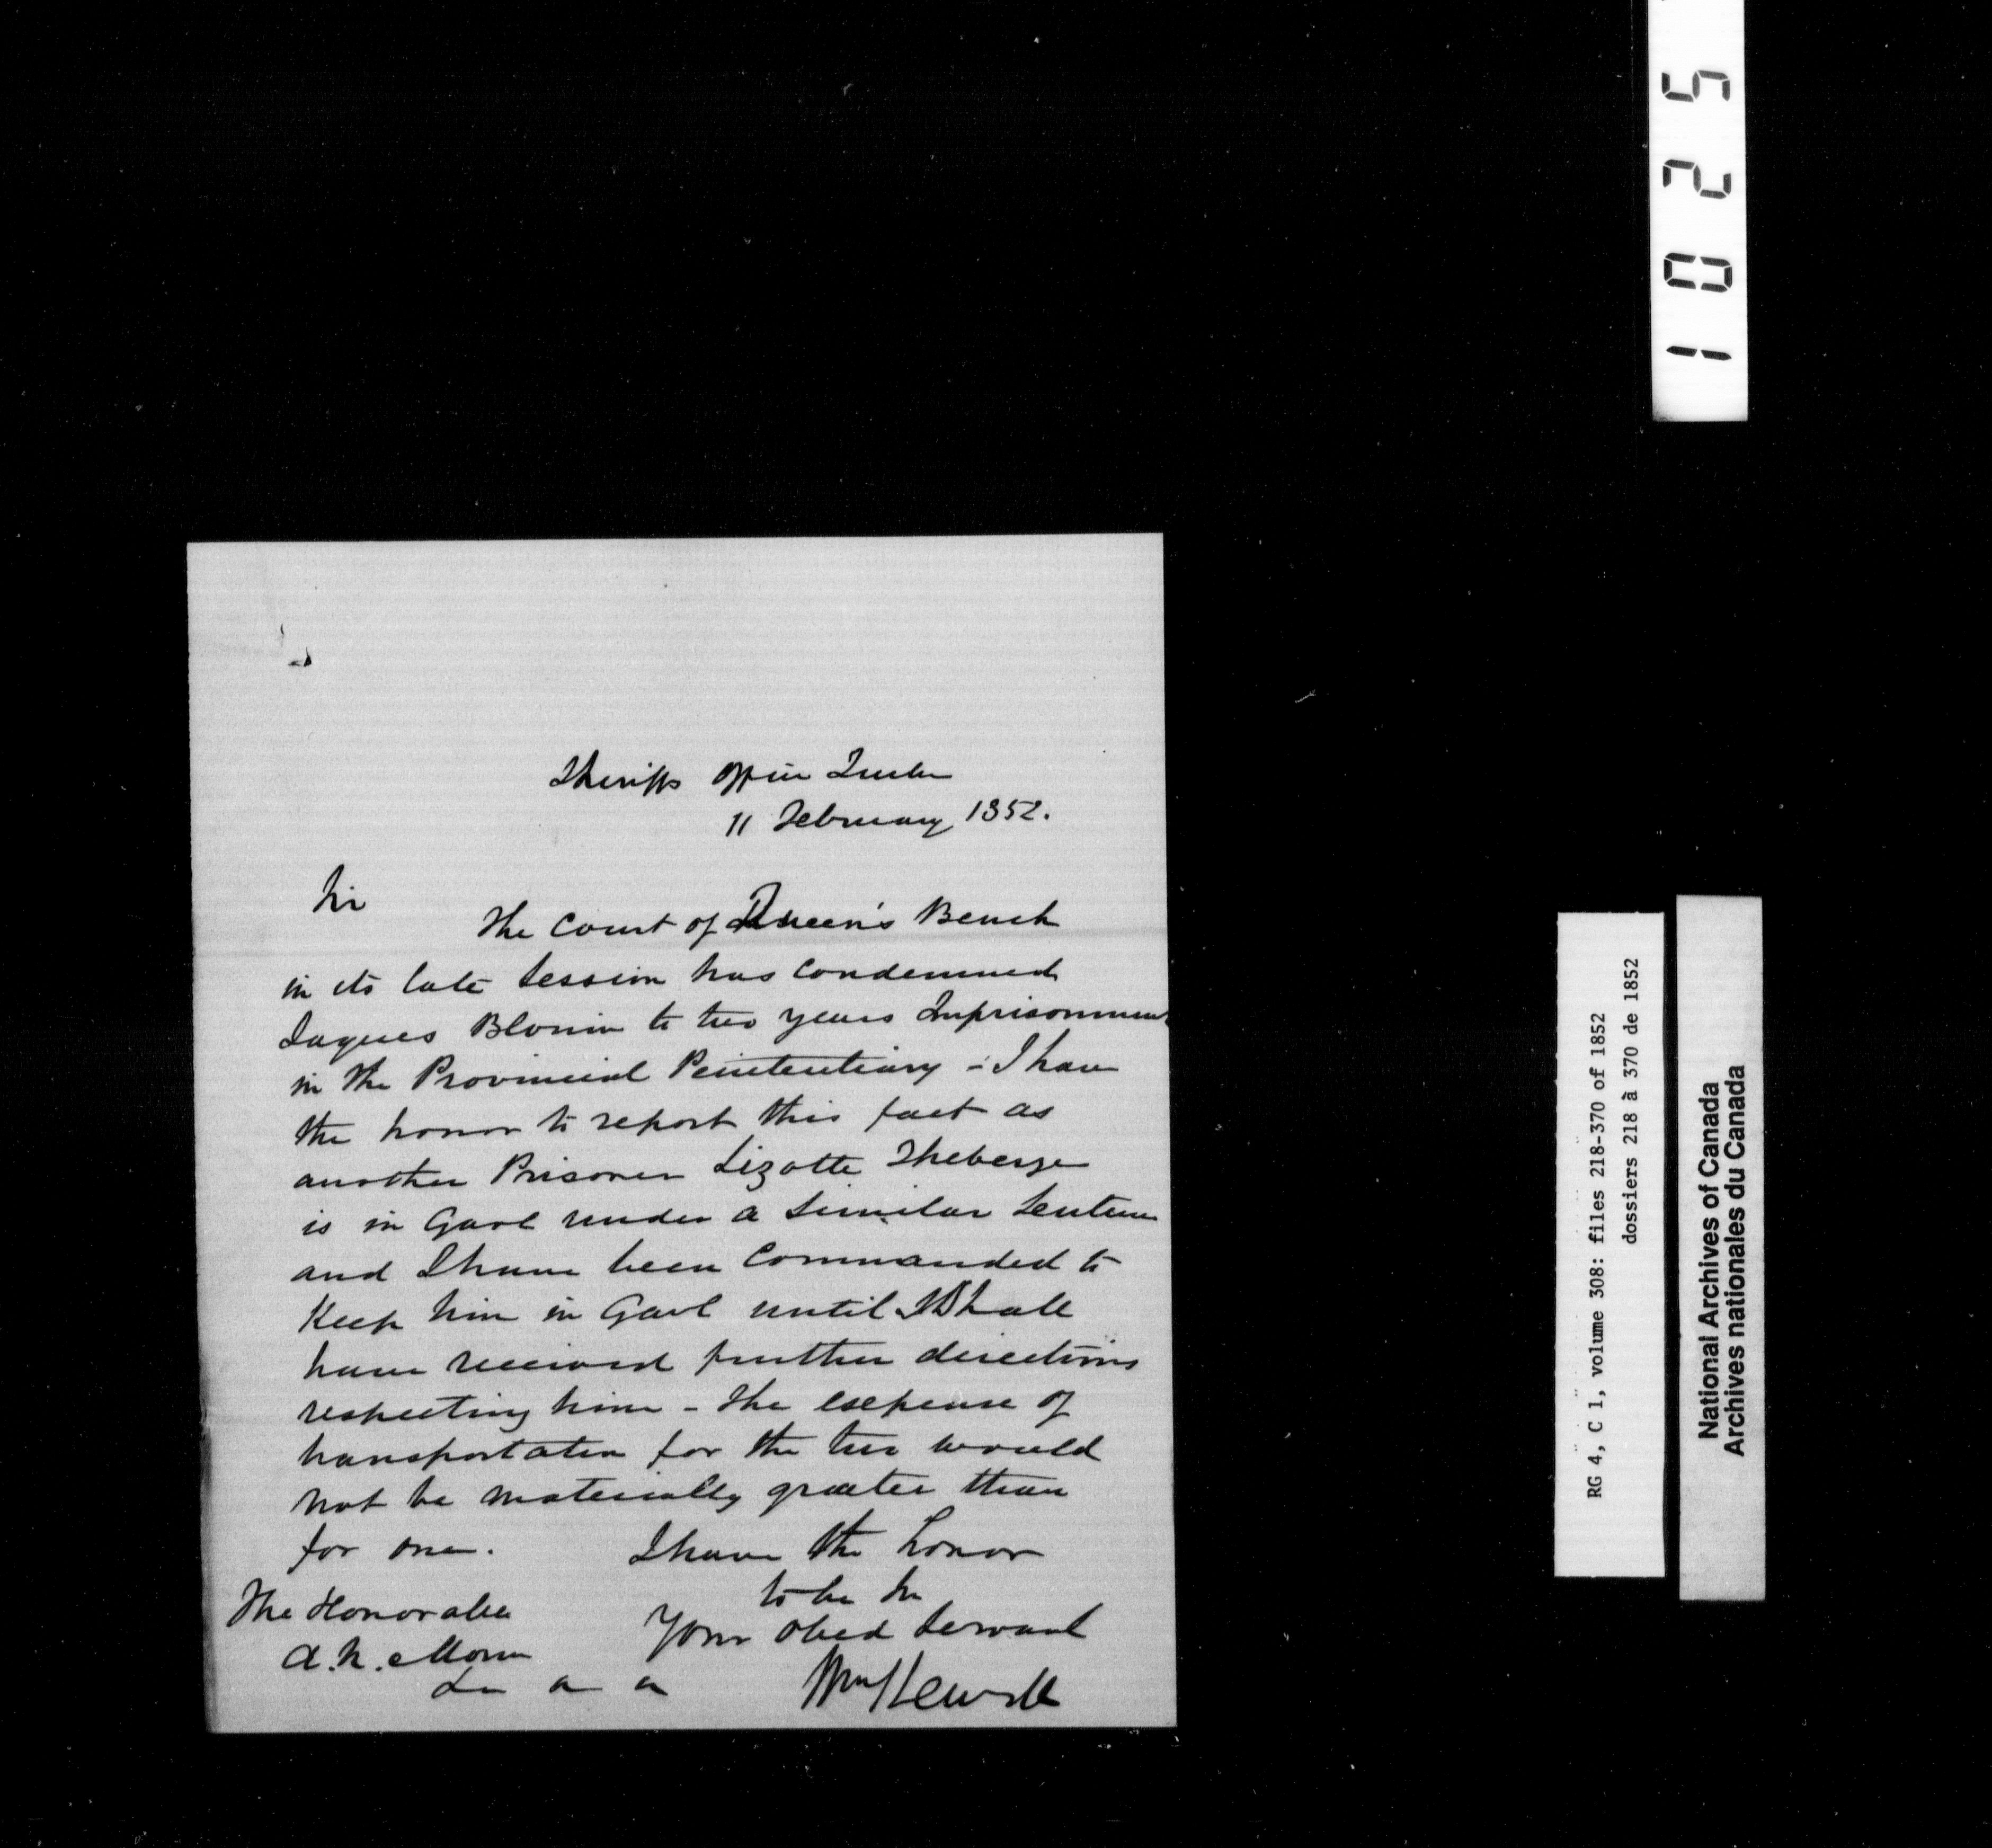 1025
Sheriffs Office Quebec
11 February 1852.
Sir
The Court of Queen's Bench
in its late Session has condemned
Jaques Blouin to two years Imprisonment
in the Provincial Penitentiary - I have
the honor to report this fact as
another Prisoner Lizotte Theberge
is in Gaol under a similar Sentence
and I have been Commanded to
Keep him in Gaol until I Shall
have received further directions
respecting him - The expense of
transportation for the two would
not be materially greater than
for one.
I have the honor
to be Sir
Your obed Servant
Wm Sewell
The Honorable
A. N. Morin
RG 4, C 1, volume 308: files 218-370 of 1852
dossiers 218 à 370 de 1852
National Archives of Canada
Archives nationales du Canada